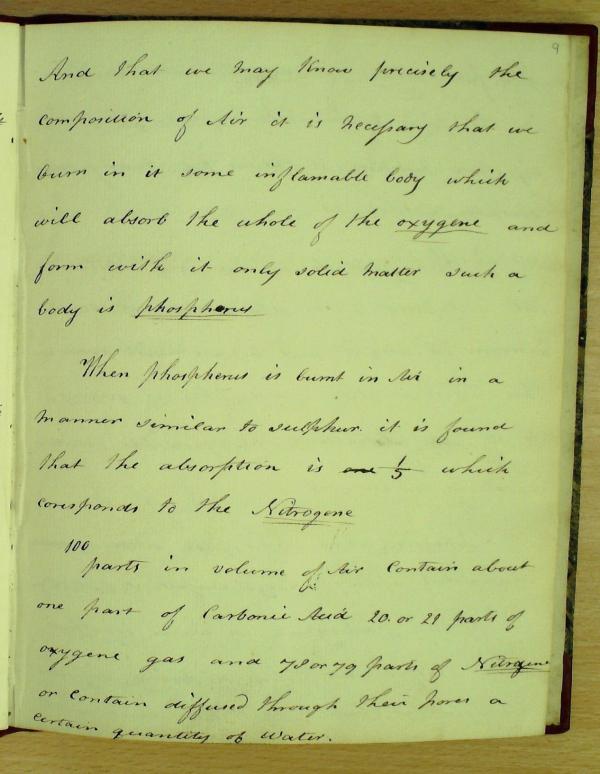 9
And that we may know precisely the
composition of Air it is necessary that we
burn in it some inflamable body which
will absorb the whole of the oxygene and
form with it only solid matter such a
body is phosphorus
When phosphorus is burnt in Air in a
manner similar to sulphur. it is found
that the absorption is one 1/5 which
coresponds to the Nitrogene
100
parts in volume of Air contain about
one part of Carbonic Acid 20. or 21 parts of
oxygene gas and 78 or 79 parts of Nitrogene
or contain diffused through their pores a
certain quantity of Water.